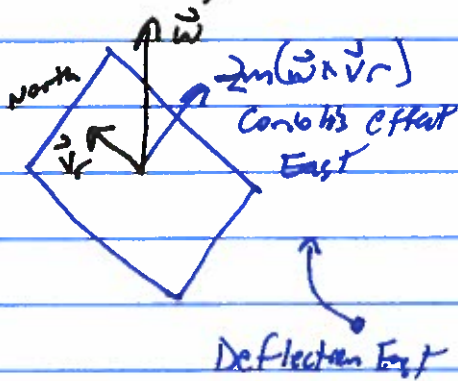 ω⃗
North
-2m(ω⃗ × v⃗r)
Coriolis effect
East
v⃗r
Deflection East